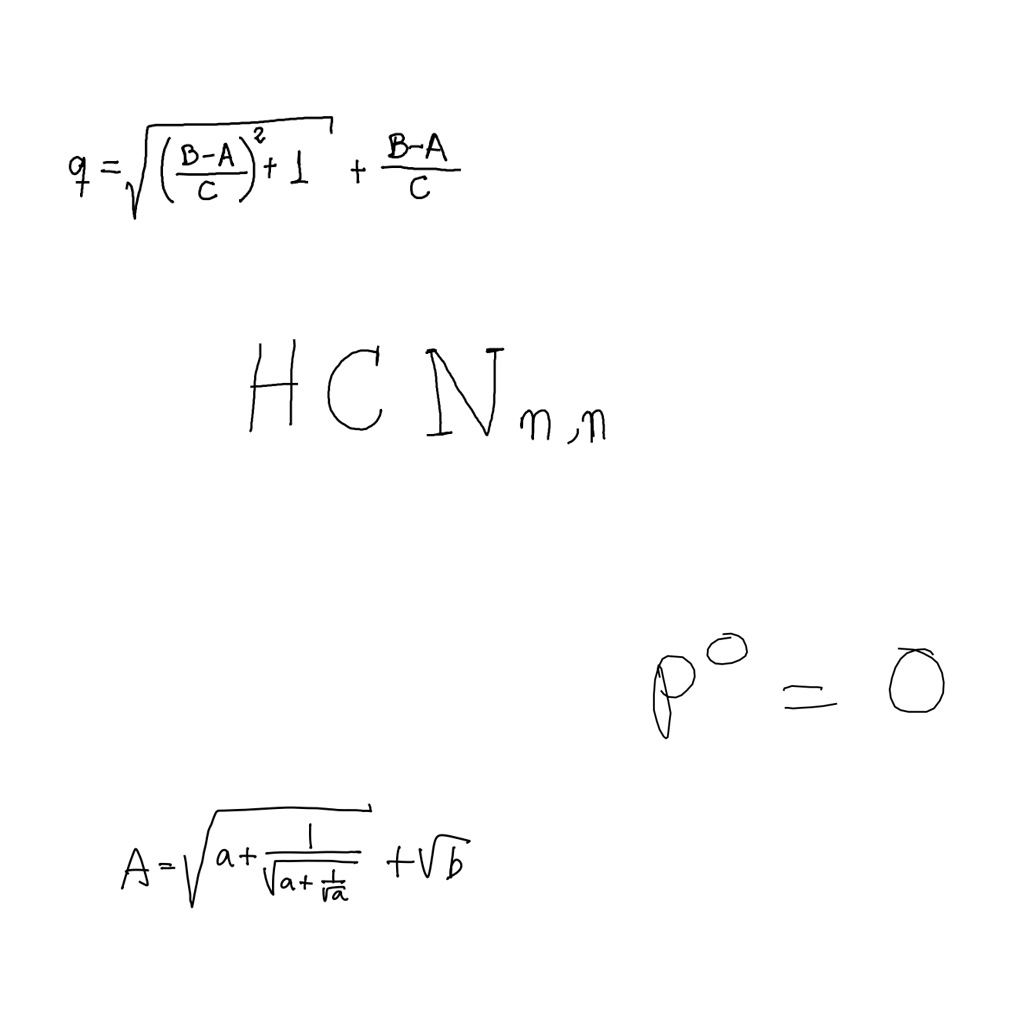 $q = \sqrt{\left(\frac{B-A}{C}\right)^2 + 1} + \frac{B-A}{C}$
$HCN_{n,n}$
$p^0 = 0$
$A = \sqrt{a + \frac{1}{\sqrt{a + \frac{1}{\sqrt{a}}}}} + \sqrt{b}$